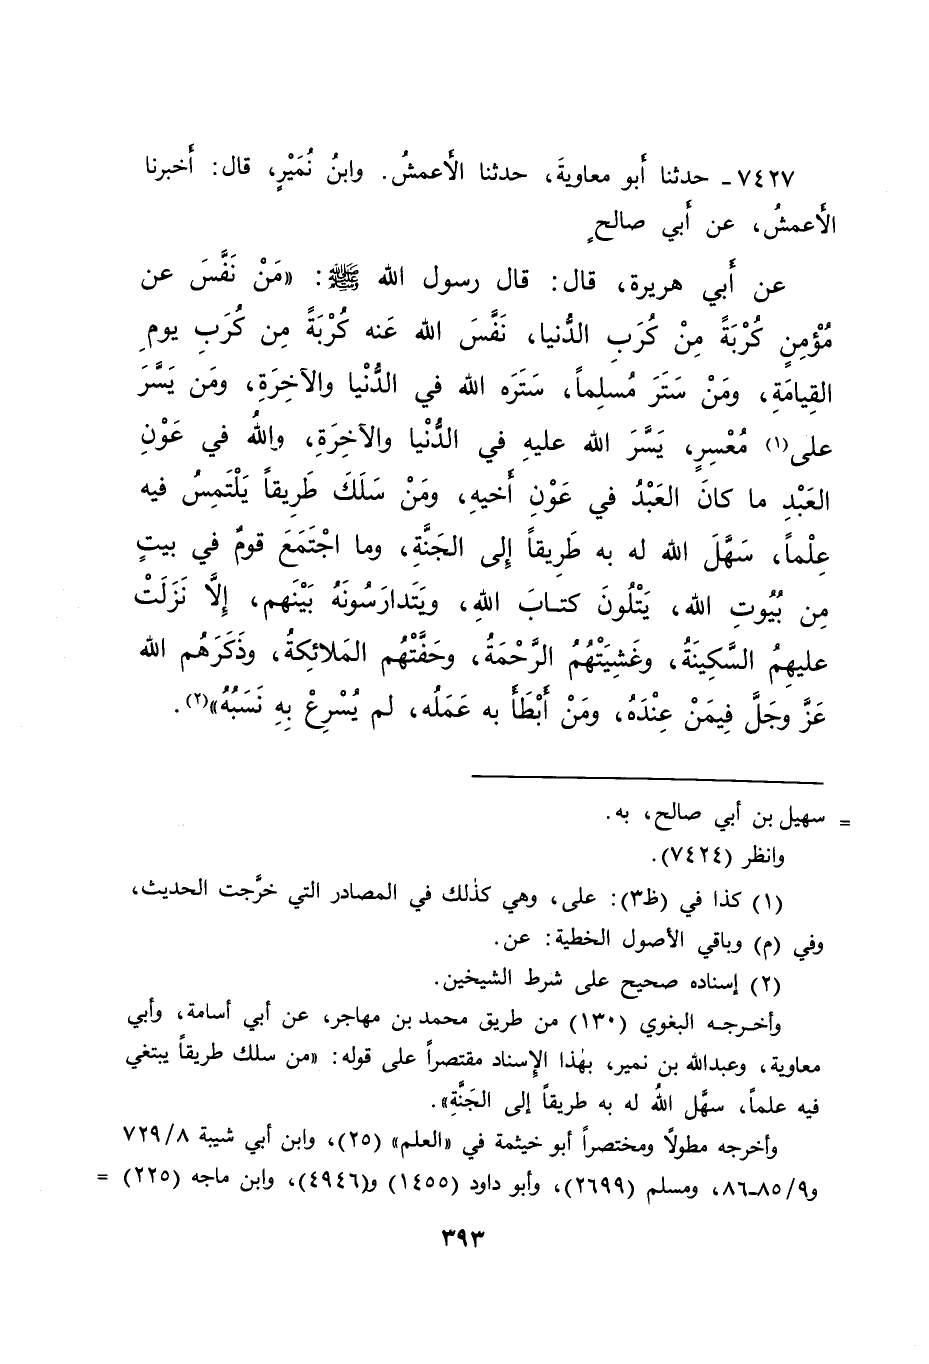 ٧٤٢٧ـ حدثنا أَبو معاويةَ، حدثنا الأَعمشُ. وابنُ نُمَيْرٍ، قال: أَخبرنا
الأَعمشُ، عن أَبي صالحٍ
عن أَبي هريرة، قال: قال رسول الله ﷺ: «مَنْ نَفَّسَ عن
مُؤْمِنٍ كُرْبَةً مِنْ كُرَبِ الدُّنيا، نَفَّسَ الله عَنه كُرْبَةً مِن كُرَبِ يومِ
القِيامَةِ، ومَنْ سَتَرَ مُسلِماً، سَتَرَه الله في الدُّنْيا والآخِرَةِ، ومَن يَسَّرَ
على(١) مُعْسِرٍ، يَسَّرَ الله عليهِ في الدُّنْيا والآخِرَةِ، واللهُ في عَوْنِ
العَبْدِ ما كانَ العَبْدُ في عَوْنِ أَخيهِ، ومَنْ سَلَكَ طَرِيقاً يَلْتَمِسُ فيه
عِلْماً، سَهَّلَ الله له به طَرِيقاً إِلى الجَنَّةِ، وما اجْتَمَعَ قومٌ في بيتٍ
مِن بُيُوتِ الله، يَتْلُونَ كتـابَ اللهِ، ويَتَدارَسُونَهُ بَيْنَهم، إِلَّا نَزَلَتْ
عليهِمُ السَّكِينَةُ، وغَشِيَتْهُمُ الرَّحْمَةُ، وحَفَّتْهُم المَلائِكةُ، وذَكَرَهُم الله
عَزَّ وجَلَّ فِيمَنْ عِنْدَهُ، ومَنْ أَبْطَأَ به عَمَلُه، لم يُسْرِعْ بِهِ نَسَبُهُ»(٢).
= سهيل بن أبي صالح، به.
وانظر (٧٤٢٤).
(١) كذا في (ظ٣): على، وهي كذٰلك في المصادر التي خرَّجت الحديث،
وفي (م) وباقي الأصول الخطية: عن.
(٢) إسناده صحيح على شرط الشيخين.
وأخـرجـه البغوي (١٣٠) من طريق محمد بن مهاجر، عن أبي أسامة، وأبي
معاوية، وعبدالله بن نمير، بهٰذا الإِسناد مقتصراً على قوله: «من سلك طريقاً يبتغي
فيه علماً، سهَّل اللهُ له به طريقاً إلى الجَنَّةِ».
وأخرجه مطولًا ومختصراً أبو خيثمة في «العلم» (٢٥)، وابن أبي شيبة ٧٢٩/٨
و٨٥/٩ـ٨٦، ومسلم (٢٦٩٩)، وأبو داود (١٤٥٥) و(٤٩٤٦)، وابن ماجه (٢٢٥) =
٣٩٣